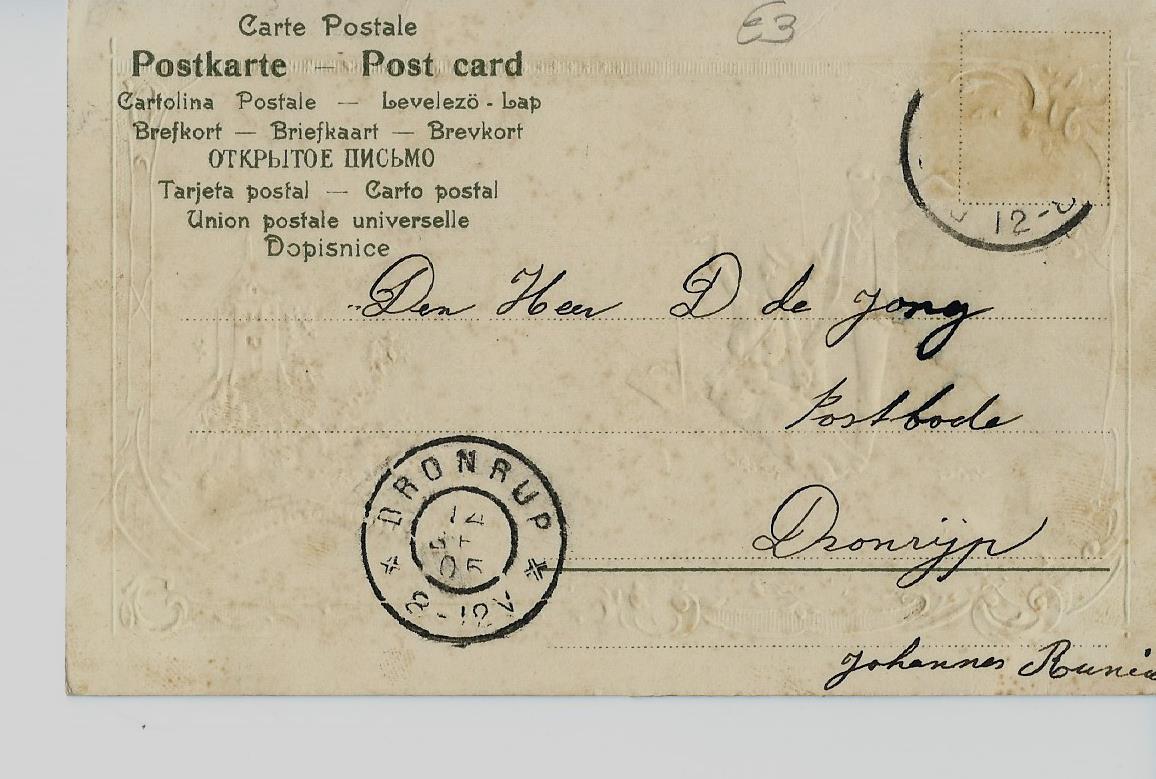 Carte Postale
E3
Postkarte — Post card
Cartolina Postale — Levelezö - Lap
Brefkort — Briefkaart — Brevkort
ОТКРЫТОЕ ПИСЬМО
Tarjeta postal — Carto postal
Union postale universelle
Dopisnice
12-
Den Heer D de Jong
Postbode
Dronrijp
DRONRIJP
14
05
8-12V
Johannes